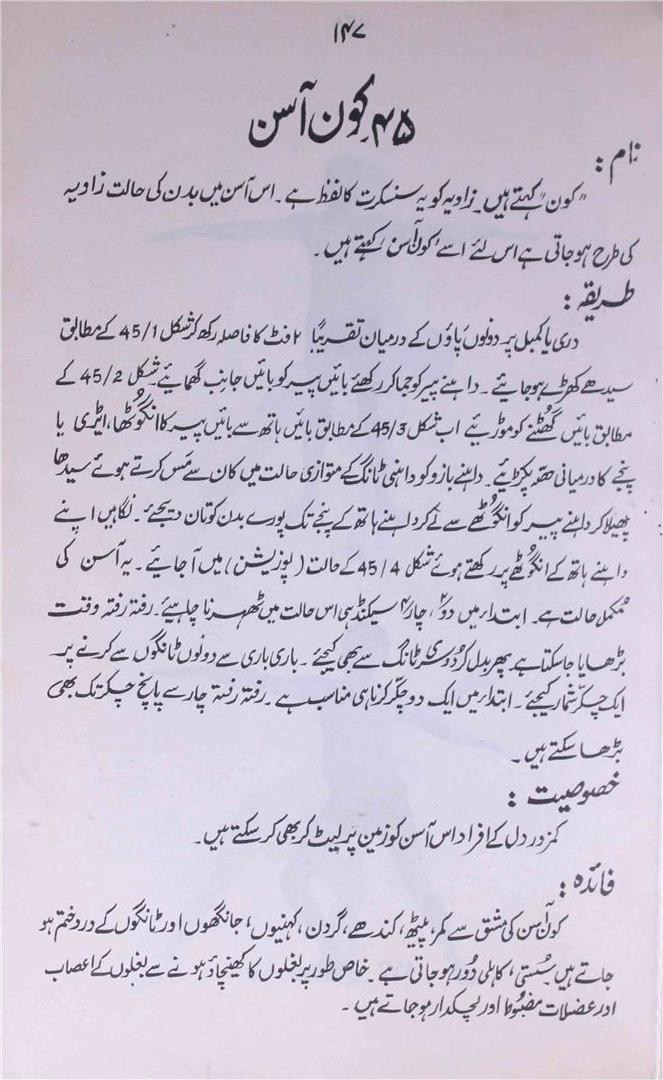 ۱۴۷
۴۵۔ کون آسن
نام :
"کون" کہتے ہیں۔ زاویہ کو یہ سنسکرت کا لفظ ہے۔ اس آسن میں بدن کی حالت زاویہ
کی طرح ہو جاتی ہے اس لئے اسے 'کون آسن' کہتے ہیں۔
طریقہ :
دری یا کمبل پر دونوں پاؤں کے درمیان تقریباً ۲ فٹ کا فاصلہ رکھ کر شکل 45/1 کے مطابق
سیدھے کھڑے ہو جائیے۔ داہنے پیر کو جما کر رکھئے بائیں پیر کو بائیں جانب گھمائیے۔ شکل 45/2 کے
مطابق بائیں گھٹنے کو موڑیئے اب شکل 45/3 کے مطابق بائیں ہاتھ سے بائیں پیر کا انگوٹھا، ایڑی یا
پنجے کا درمیانی حصّہ پکڑیئے۔ داہنے بازو کو داہنی ٹانگ کے متوازی حالت میں کان سے مَس کرتے ہوئے سیدھا
پھیلا کر داہنے پیر کو انگوٹھے سے لے کر داہنے ہاتھ کے پنجے تک پورے بدن کو تان دیجئے۔ نگاہیں اپنے
داہنے ہاتھ کے انگوٹھے پر رکھتے ہوئے شکل 45/4 کے حالت (پوزیشن) میں آ جائیے۔ یہ آسن کی
مکمل حالت ہے۔ ابتداء میں دو ۲، چار ۴ سیکنڈ ہی اس حالت میں ٹھہرنا چاہیئے۔ رفتہ رفتہ وقت
بڑھایا جا سکتا ہے۔ پھر بدل کر دوسری ٹانگ سے بھی کیجئے۔ باری باری سے دونوں ٹانگوں سے کرنے پر
ایک چکّر شمار کیجئے۔ ابتداء میں ایک دو چکّر کرنا ہی مناسب ہے۔ رفتہ رفتہ چار سے پانچ چکر تک بھی
بڑھا سکتے ہیں۔
خصوصیت :
کمزور دل کے افراد اس آسن کو زمین پر لیٹ کر بھی کر سکتے ہیں۔
فائدہ :
کون آسن کی مشق سے کمر، پیٹھ، کندھے، گردن، کہنیوں، جانگھوں اور ٹانگوں کے درد ختم ہو
جاتے ہیں۔ سُستی، کاہلی دُور ہو جاتی ہے۔ خاص طور پر بغلوں کا کھینچاؤ ہونے سے بغلوں کے اعصاب
اور عضلات مضبُوط اور لچکدار ہو جاتے ہیں۔